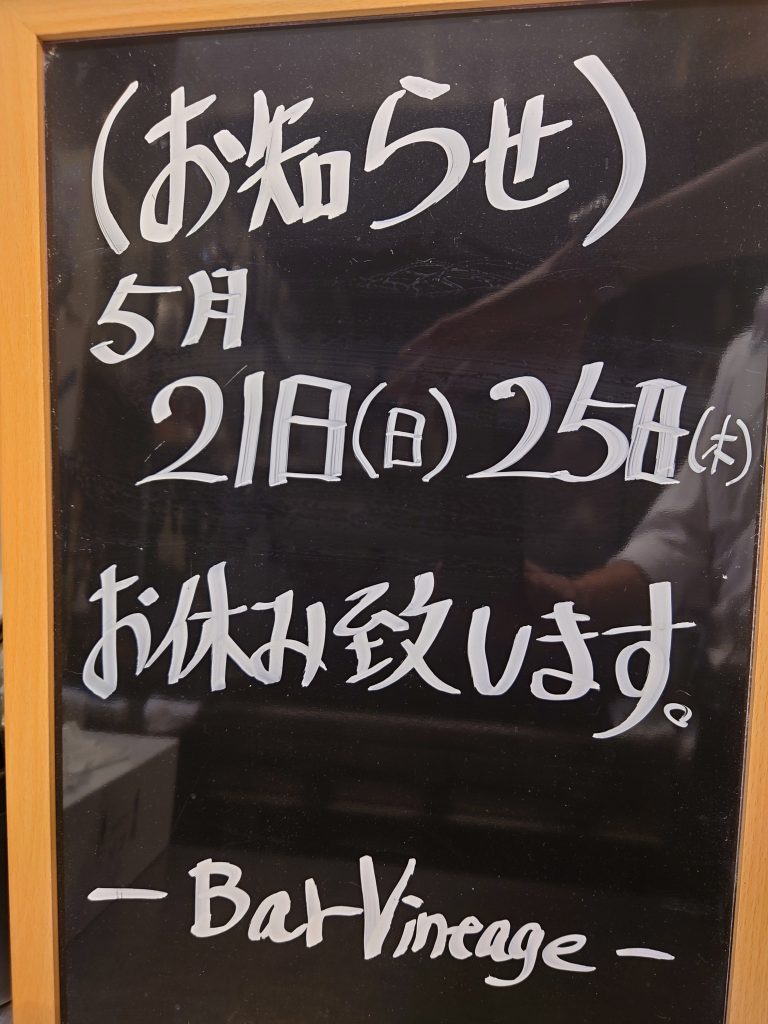 (お知らせ)
5月
21日(日) 25日(木)
お休み致します。
- Bar Vineage -